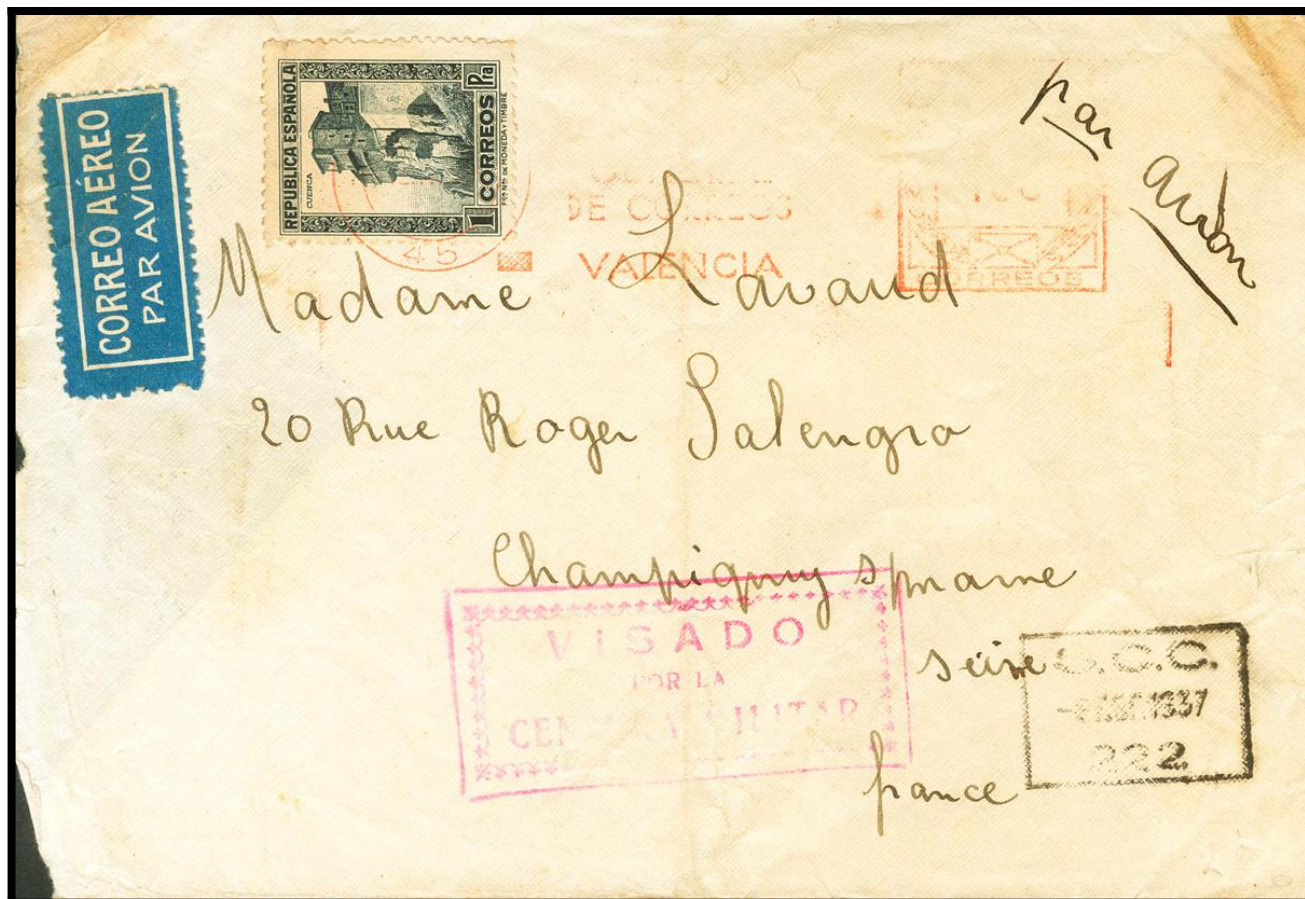 CORREO AÉREO
PAR AVION
REPUBLICA ESPAÑOLA
CUENCA
1 CORREOS Pta
Fca Nal DE MONEDA Y TIMBRE
45
DE CORREOS
VALENCIA
CORREOS
par avion
Madame Lavaud
20 Rue Roger Salengro
Champigny s/marne
seine
france
VISADO
POR LA
CENSURA MILITAR
S.C.C.
1937
222